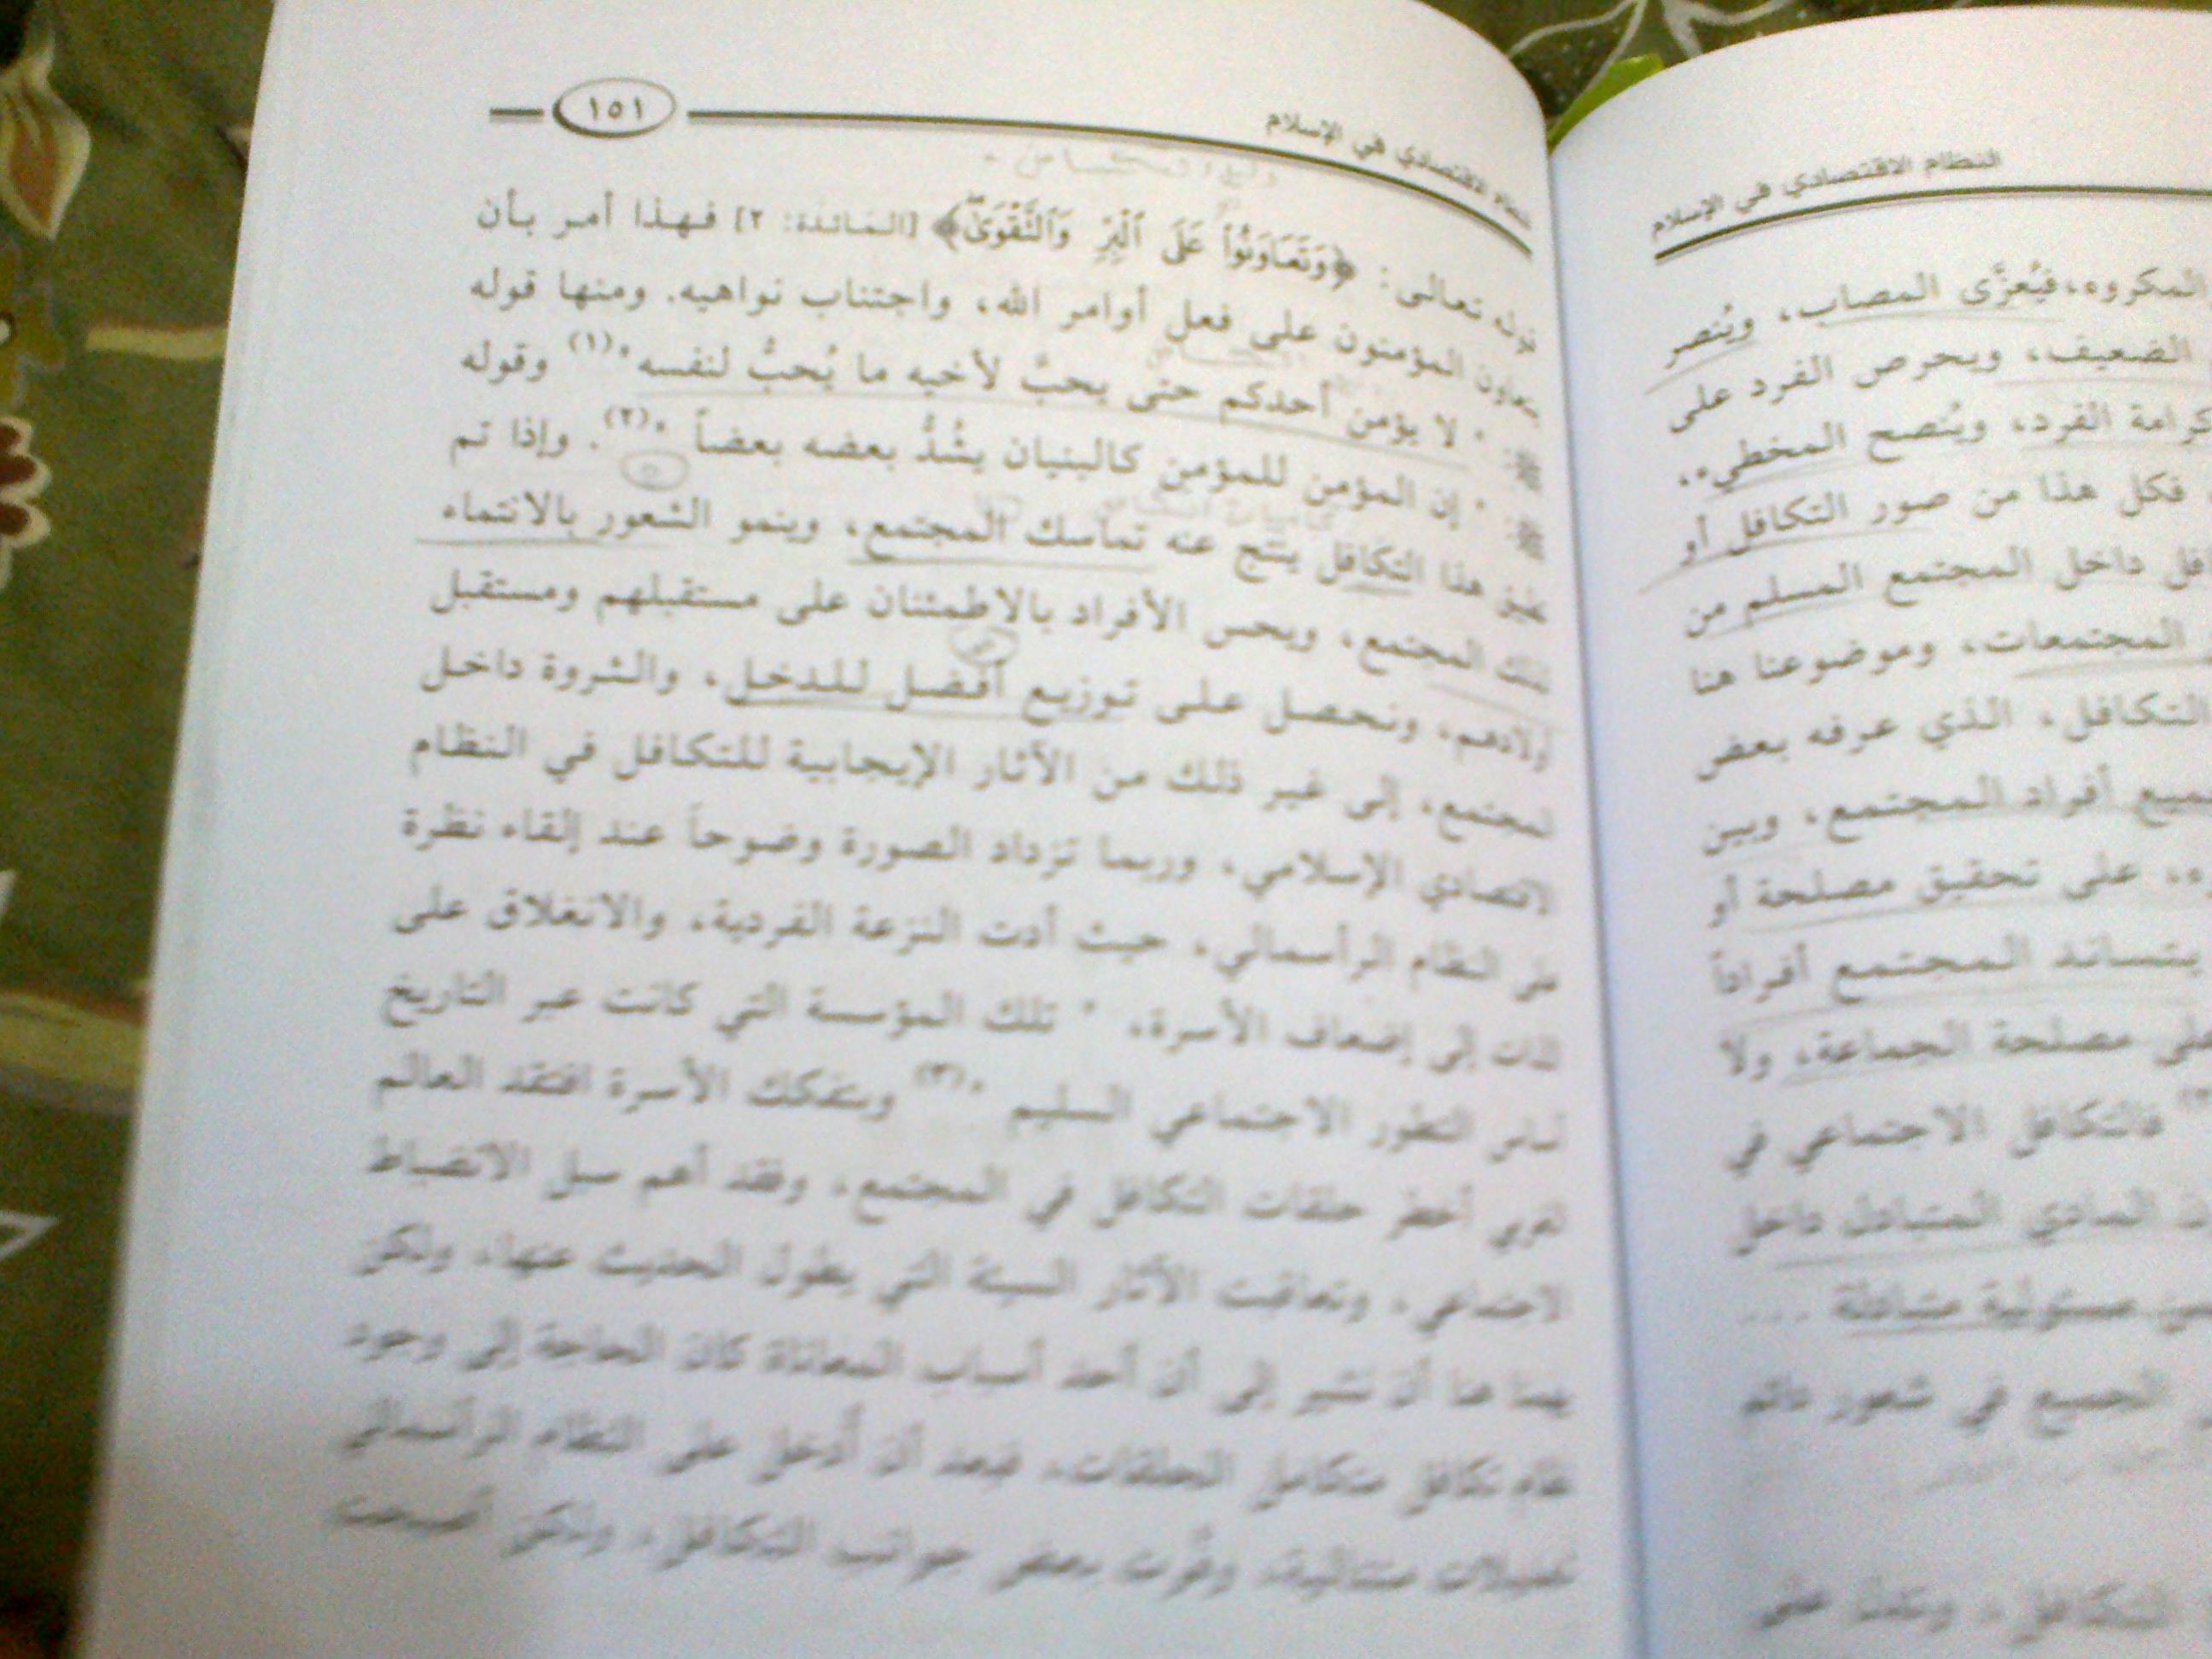 النظام الاقتصادي في الإسلام
المكروه، فيُعزَّى المصاب، ويُنصر
الضعيف، ويحرص الفرد على
كرامة الفرد، ويُنصح المخطيء،
فكل هذا من صور التكافل أو
داخل المجتمع المسلم من
المجتمعات، وموضوعنا هنا
التكافل، الذي عرفه بعض
أفراد المجتمع، وبين
على تحقيق مصلحة أو
يتساند المجتمع أفراداً
على مصلحة الجماعة، ولا
فالتكافل الاجتماعي في
المادي المتبادل داخل
مسئولية متبادلة ...
الجميع في شعور دائم
التكافل،
النظام الاقتصادي في الإسلام
١٥١
قوله تعالى: ﴿وَتَعَاوَنُواْ عَلَى ٱلْبِرِّ وَٱلتَّقْوَىٰۖ﴾ [المائدة: ٢] فهذا أمر بأن
يتعاون المؤمنون على فعل أوامر الله، واجتناب نواهيه. ومنها قوله
ﷺ: " لا يؤمن أحدكم حتى يحبَّ لأخيه ما يُحبُّ لنفسه "(١) وقوله
ﷺ: " إن المؤمن للمؤمن كالبنيان يشُدُّ بعضه بعضاً "(٢). وإذا تم
تطبيق هذا التكافل ينتج عنه تماسك المجتمع، وينمو الشعور بالانتماء
لذلك المجتمع، ويحس الأفراد بالاطمئنان على مستقبلهم ومستقبل
أولادهم، ونحصل على توزيع أفضل للدخل، والثروة داخل
المجتمع، إلى غير ذلك من الآثار الإيجابية للتكافل في النظام
الاقتصادي الإسلامي، وربما تزداد الصورة وضوحاً عند إلقاء نظرة
على النظام الرأسمالي، حيث أدت النزعة الفردية، والانغلاق على
الذات إلى إضعاف الأسرة، " تلك المؤسسة التي كانت عبر التاريخ
أساس التطور الاجتماعي السليم "(٣) وبتفكك الأسرة افتقد العالم
الغربي أخطر حلقات التكافل في المجتمع، وفقد أهم سبل الانضباط
الاجتماعي، وتعاقبت الآثار السيئة التي يطول الحديث عنها، ولكن
يهمنا هنا أن نشير إلى أن أحد أسباب المعاناة كان الحاجة إلى وجود
نظام تكافل متكامل الحلقات، فبعد أن أُدخل على النظام الرأسمالي
تعديلات متتالية، وقُوِّيت بعض جوانب التكافل، ولكن أصبحت